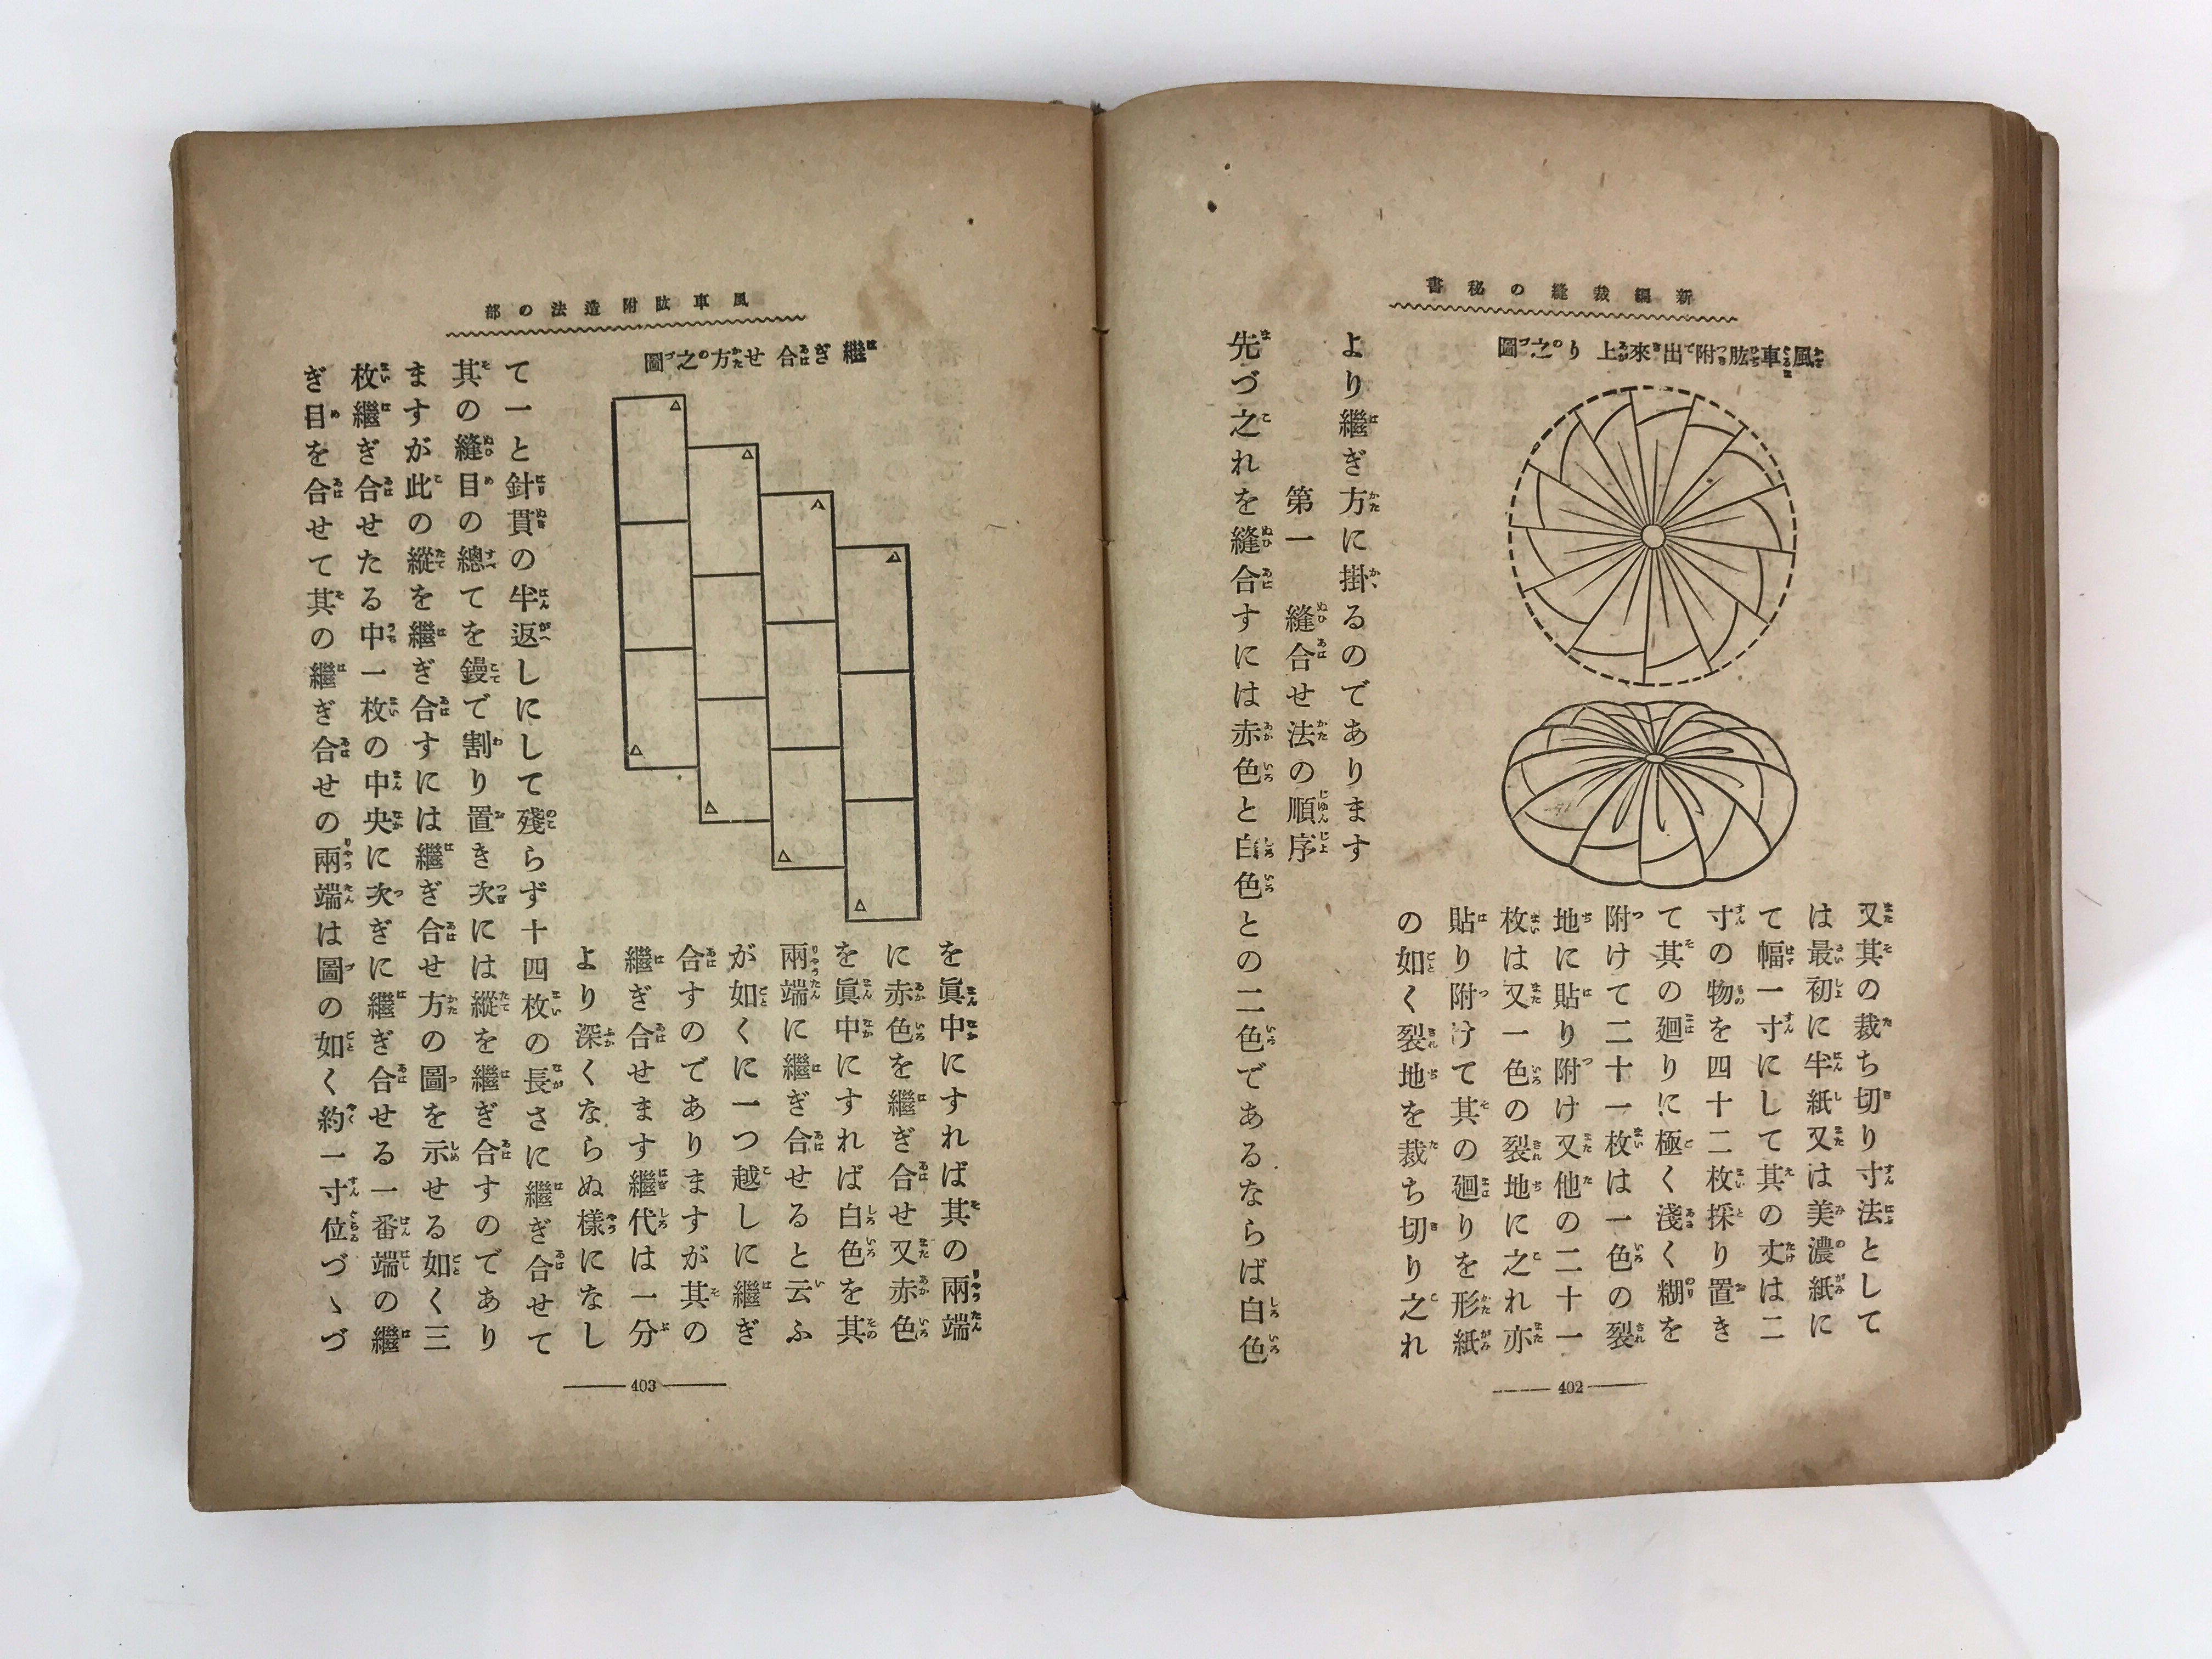 書秘の縫裁編新
圖之り上來出附肱車風
又其の裁ち切り寸法として
は最初に半紙又は美濃紙に
て幅一寸にして其の丈は二
寸の物を四十二枚採り置き
て其の廻りに極く淺く糊を
附けて二十一枚は一色の裂
地に貼り附け又他の二十一
枚は又一色の裂地に之れ亦
貼り附けて其の廻りを形紙
の如く裂地を裁ち切り之れ
より繼ぎ方に掛るのであります
第一 縫合せ法の順序
先づ之れを縫合すには赤色と白色との二色であるならば白色
402
部の法造附肱車風
圖之方せ合ぎ繼
を眞中にすれば其の兩端
に赤色を繼ぎ合せ又赤色
を眞中にすれば白色を其
兩端に繼ぎ合せると云ふ
が如くに一つ越しに繼ぎ
合すのでありますが其の
繼ぎ合せます繼代は一分
より深くならぬ樣になし
て一と針貫の半返しにして殘らず十四枚の長さに繼ぎ合せて
其の縫目の總てを鏝で割り置き次には縱を繼ぎ合すのであり
ますが此の縱を繼ぎ合すには繼ぎ合せ方の圖を示せる如く三
枚繼ぎ合せたる中一枚の中央に次ぎに繼ぎ合せる一番端の繼
ぎ目を合せて其の繼ぎ合せの兩端は圖の如く約一寸位づゝづ
403